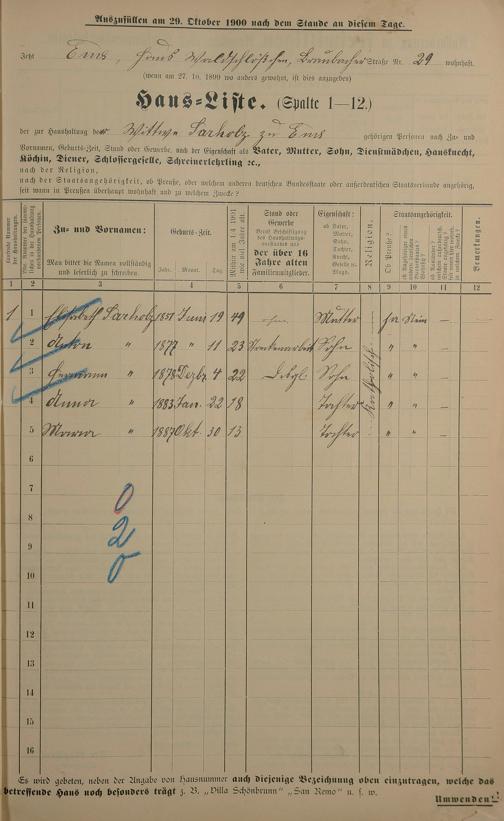 Auszufüllen am 29. Oktober 1900 nach dem Stande an diesem Tage.
Jetzt Ems, Haus Waldschlößchen, Braubacher Straße Nr. 29 wohnhaft.
(wenn am 27. 10. 1899 wo anders gewohnt, ist dies anzugeben)
Haus=Liste. (Spalte 1—12.)
der zur Haushaltung der Wittwe Sarholz zu Ems gehörigen Personen nach Zu- und
Vornamen, Geburts-Zeit, Stand oder Gewerbe, nach der Eigenschaft als Vater, Mutter, Sohn, Dienstmädchen, Hausknecht,
Köchin, Diener, Schlossergeselle, Schreinerlehrling ec.,
nach der Religion,
nach der Staatsangehörigkeit, ob Preuße, oder welchem anderen deutschen Bundesstaate oder außerdeutschen Staatsverbande angehörig,
seit wann in Preußen überhaupt wohnhaft und zu welchem Zwecke?
Zu- und Vornamen:
Man bittet die Namen vollständig und leserlich zu schreiben.
Geburts-Zeit.
Jahr. Monat. Tag.
Stand oder Gewerbe
der über 16 Jahre alten Familienmitglieder.
Eigenschaft:
ob Vater, Mutter, Sohn, Tochter,
Religion.
Staatsangehörigkeit.
Ob Preuße?
Bemerkungen.
1 2 3 4 5 6 7 8 9 10 11 12
1 1 Elisabeth Sarholz 1851 Juni 19 49 ohne Mutter Katholisch ja Nein —
2 Anton " 1877 " 11 23 Sohn " " —
3 Hermann " 1878 Dezbr. 4 22 Sohn " " —
4 Anna " 1883 Jan. 22 18 Tochter " " —
5 Maria " 1887 Okt 30 13 Tochter " " —
6
7
0
8
2
9
0
10
11
12
13
14
15
16
Es wird gebeten, neben der Angabe von Hausnummer auch diejenige Bezeichnung oben einzutragen, welche das
betreffende Haus noch besonders trägt z. B. „Villa Schönbrunn" „San Remo" u. s. w.
Umwenden!